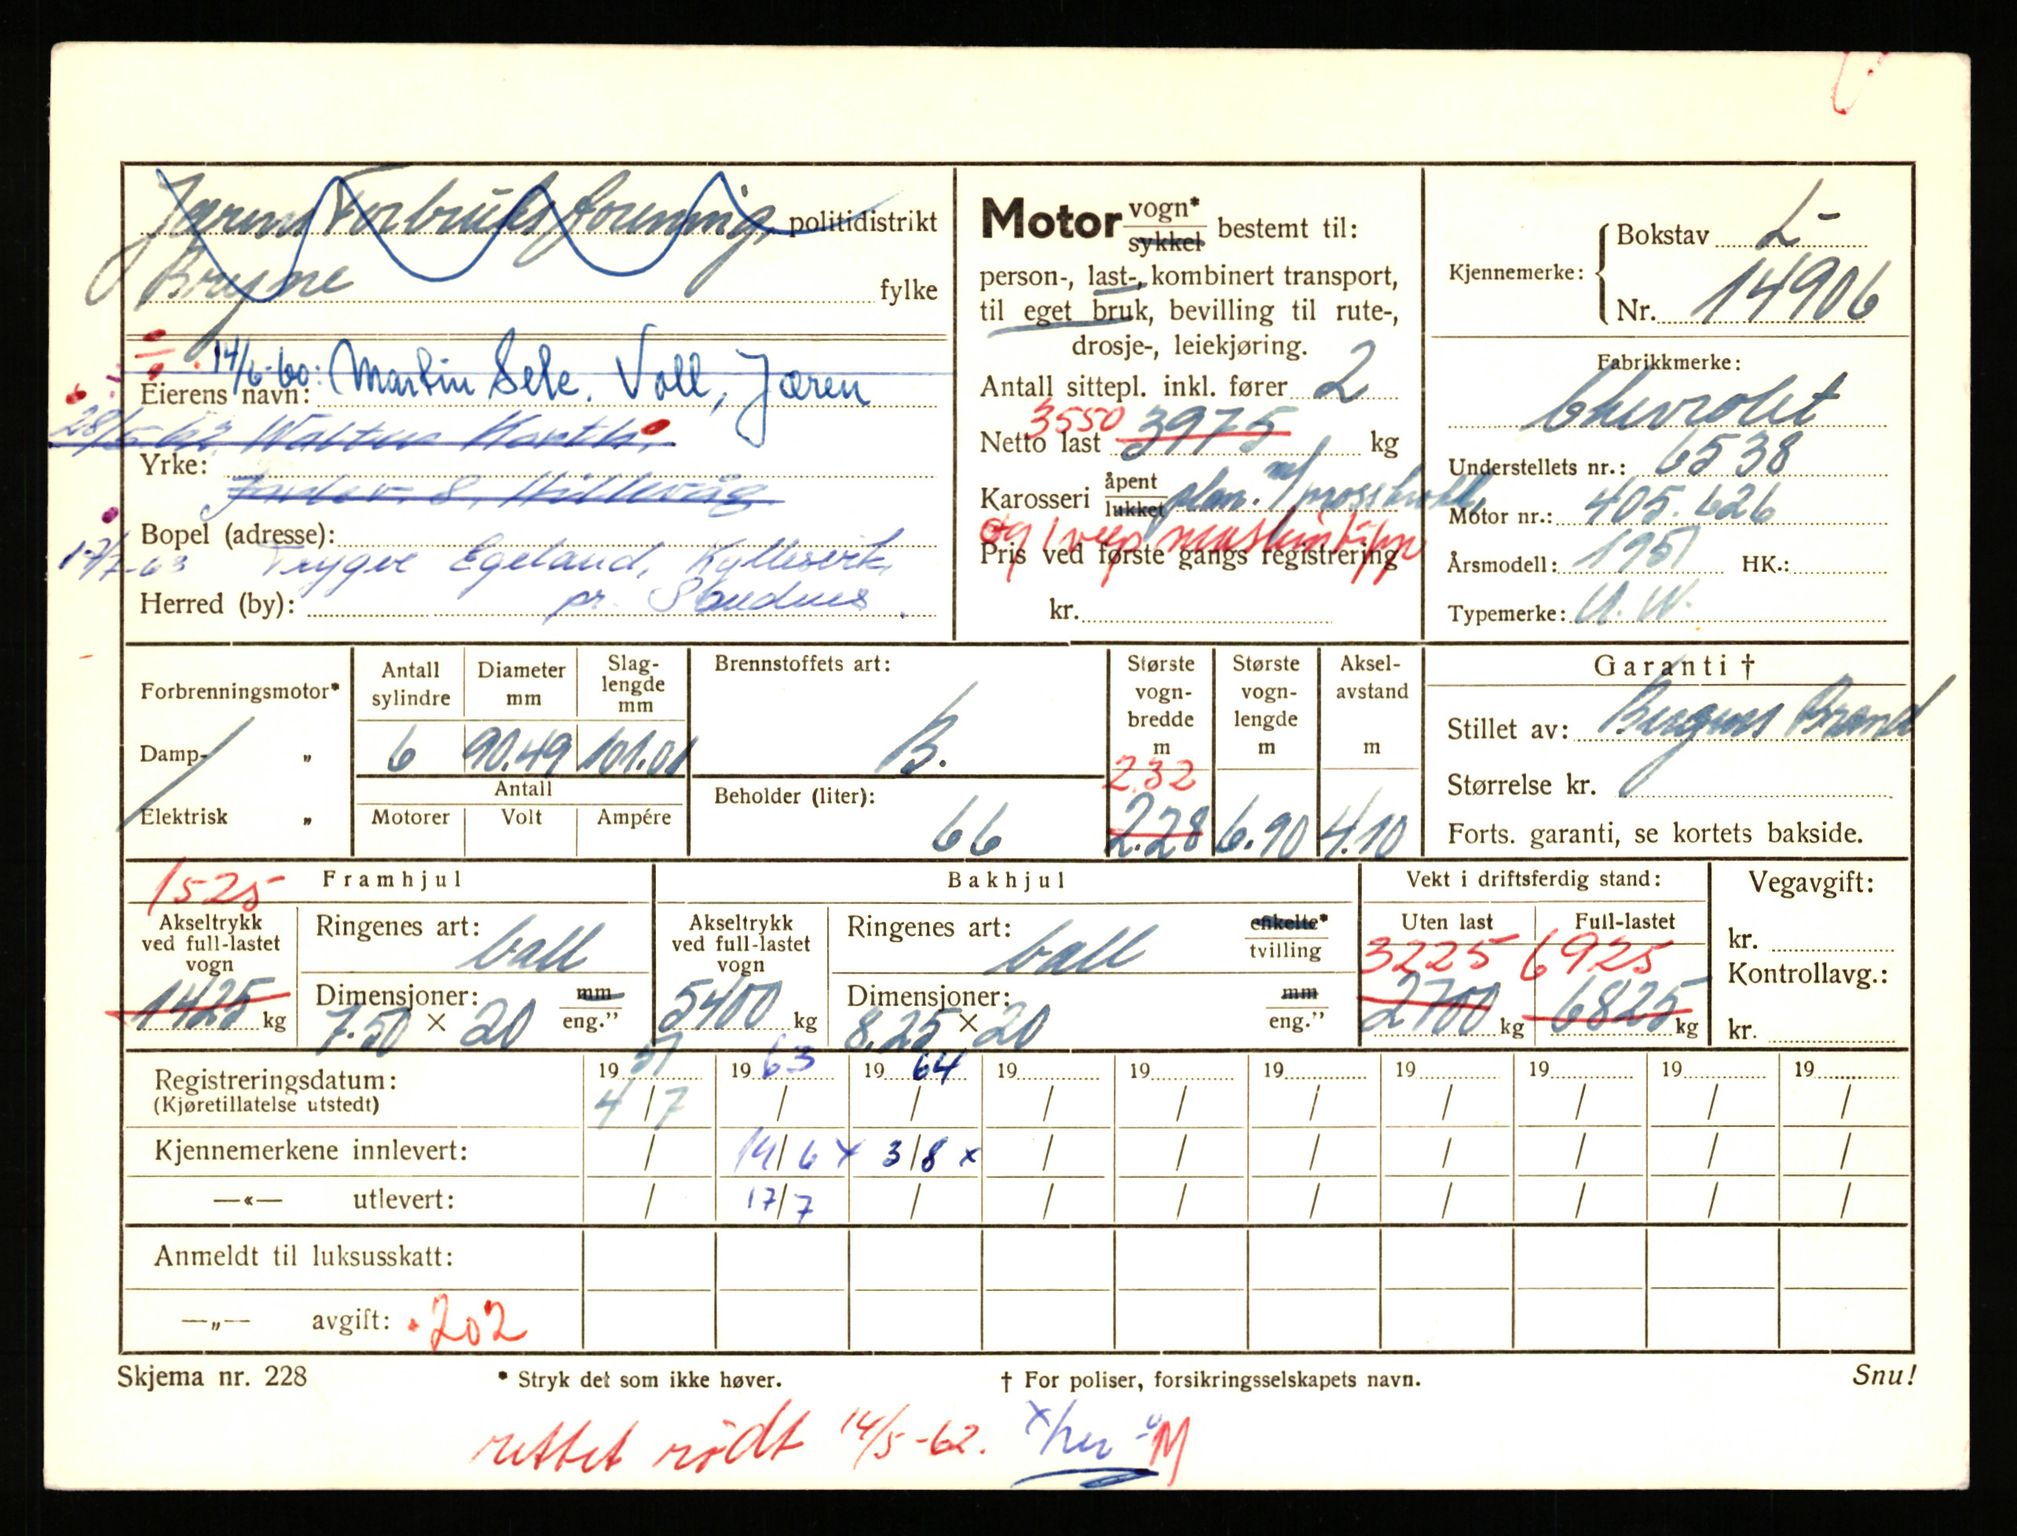 Jærens Forbruksforening, politidistrikt
Bryne fylke
14/6-60: Martin Sele. Voll, Jæren
Eierens navn:
28/5-62 Walter
Yrke:
Hillevåg
Bopel (adresse):
17/7-63 Trygve Egeland, Kyllesvik,
Herred (by): pr. Sandnes.
Motor vogn* sykkel bestemt til:
person-, last-, kombinert transport,
til eget bruk, bevilling til rute-,
drosje-, leiekjøring.
Antall sittepl. inkl. fører 2
3550
Netto last 3975 kg
Karosseri åpent lukket plan. m/
og veip maskintipp
Pris ved første gangs registrering
kr.
Kjennemerke: Bokstav L-
Nr. 14906
Fabrikkmerke:
Chevrolet
Understellets nr.: 6538
Motor nr.: 405.626
Årsmodell: 1951 HK.:
Typemerke: U.W.
Forbrenningsmotor*
Damp- "
Elektrisk "
Antall sylindre 6
Diameter mm 90.49
Slaglengde mm 101.01
Antall
Motorer Volt Ampére
Brennstoffets art:
B.
Beholder (liter):
66
Største vogn-bredde m 2.32 2.28
Største vogn-lengde m 6.90
Aksel-avstand m 4.10
Garanti †
Stillet av: Bergens Brand
Størrelse kr.
Forts. garanti, se kortets bakside.
1525 Framhjul
Akseltrykk ved full-lastet vogn
1425 kg
Ringenes art: ball
Dimensjoner: mm
7.50 × 20 eng."
Bakhjul
Akseltrykk ved full-lastet vogn
5400 kg
Ringenes art: ball enkelte* tvilling
Dimensjoner: mm
8.25 × 20 eng."
Vekt i driftsferdig stand:
Uten last Full-lastet
3225 6925
2700 kg 6825 kg
Vegavgift:
kr.
Kontrollavg.:
kr.
Registreringsdatum: 1951 1963 1964 19 19 19 19 19 19 19
(Kjøretillatelse utstedt) 4/7 / / / / / / / / /
Kjennemerkene innlevert: / 14/6 x 3/8 x / / / / / / /
—«— utlevert: / 17/7 / / / / / / / /
Anmeldt til luksusskatt:
—„— avgift: 202
Skjema nr. 228 * Stryk det som ikke høver. † For poliser, forsikringsselskapets navn. Snu!
rettet rødt 14/5-62. x her M